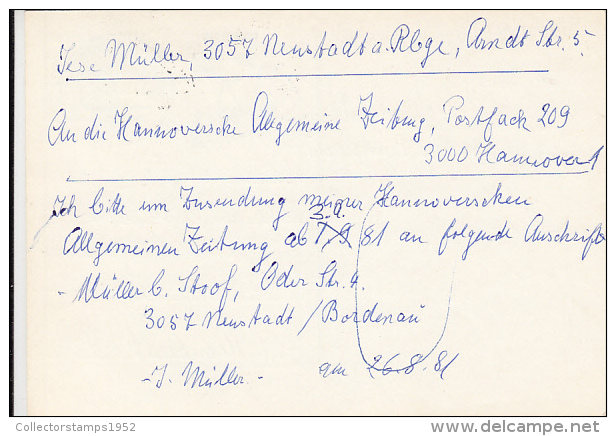 Müller, 3057 Neustadt a. Rbge, Arndt Str. 5
An die Hannoversche Allgemeine Zeitung, Postfach 209
3000 Hannover 1
Ich bitte um Zusendung meiner Hannoverschen
3.9.
Allgemeinen Zeitung ab 81 an folgende Anschrift
- Müller b. Stoof, Oder Str. 4.
3057 Neustadt / Bordenau
- I. Müller - gen 26.8.81
Collectorstamps1952
www.delcampe.net